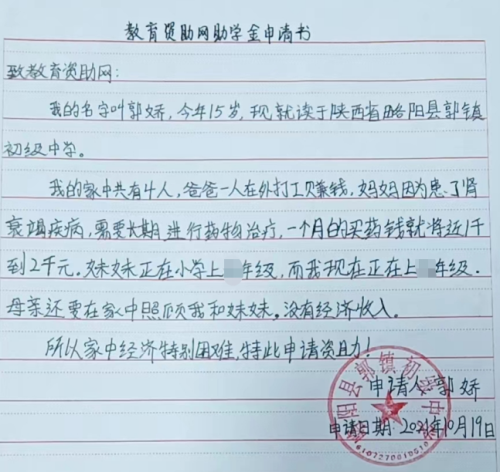 教育资助网助学金申请书
致教育资助网：
我的名字叫郭娇，今年15岁，现就读于陕西省略阳县郭镇
初级中学。
我的家中共有4人，爸爸一人在外打工赚钱，妈妈因为患了肾
衰竭疾病，需要长期进行药物治疗，一个月的买药钱就将近1千
到2千元。妹妹正在小学上年级，而我现在正在上年级.
母亲还要在家中照顾我和妹妹。没有经济收入。
所以家中经济特别困难，特此申请资助！
申请人郭娇
申请日期：2021年10月19日
阳县郭镇初级中学